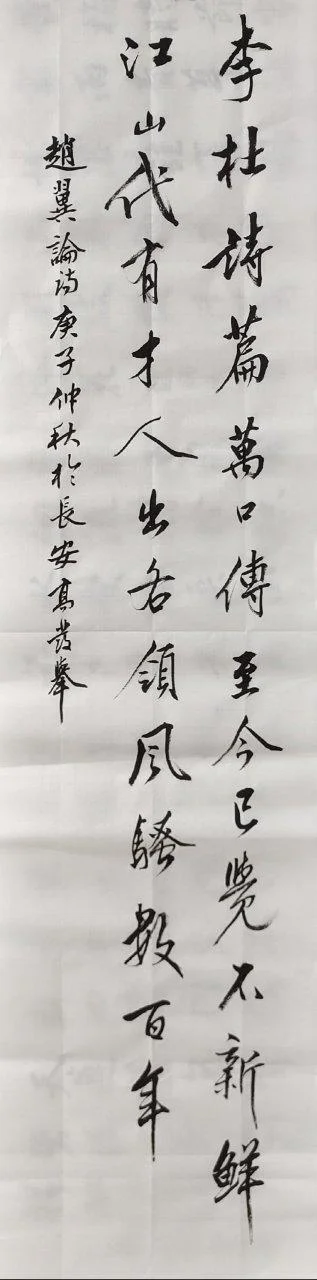 李杜詩篇萬口傳至今已覺不新鮮
江山代有才人出各領风騷數百年
趙翼論詩庚子仲秋於長安高發舉